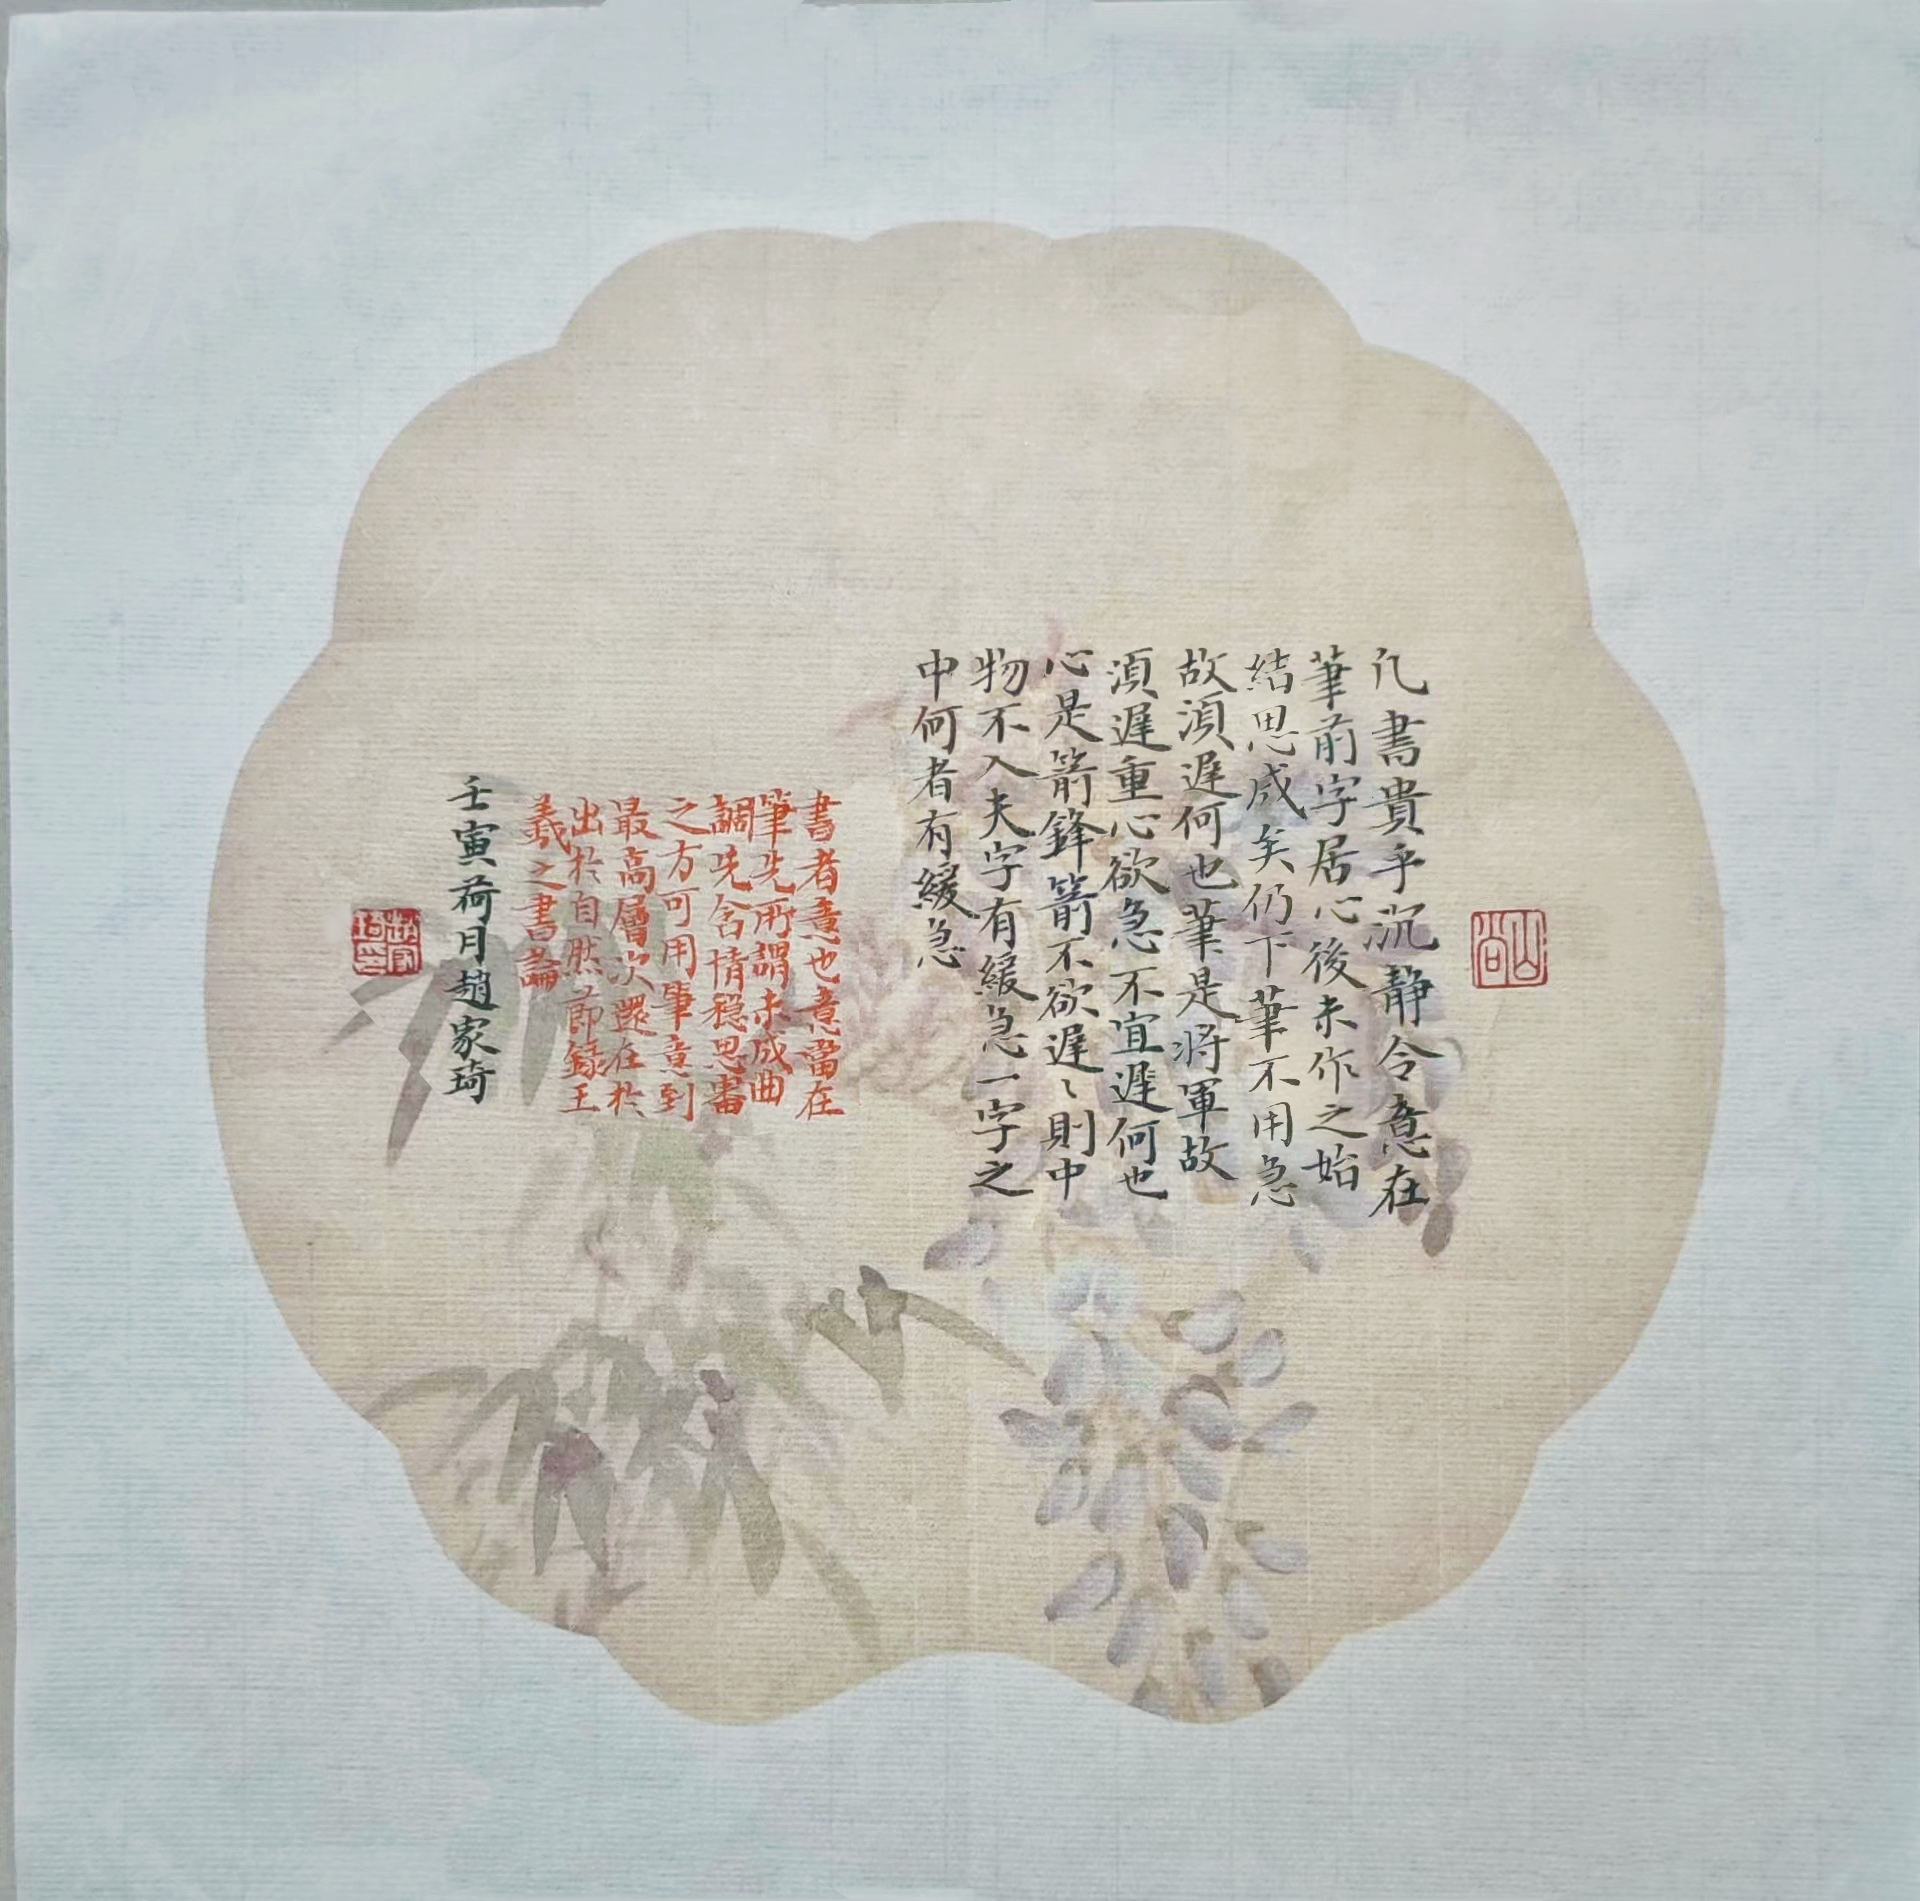 凡書貴乎沉静令意在
筆前字居心後未作之始
結思成矣仍下筆不用急
故湏遲何也筆是将軍故
湏遲重心欲急不宜遲何也
心是箭鋒箭不欲遲〻則中
物不入夫字有緩急一字之
中何者有緩急
書者意也意當在
筆先所謂未成曲
調先含情穏思畫
之方可用筆意到
最高層次還在於
出於自然節録王
羲之書論
壬寅荷月趙家琦
山
尚